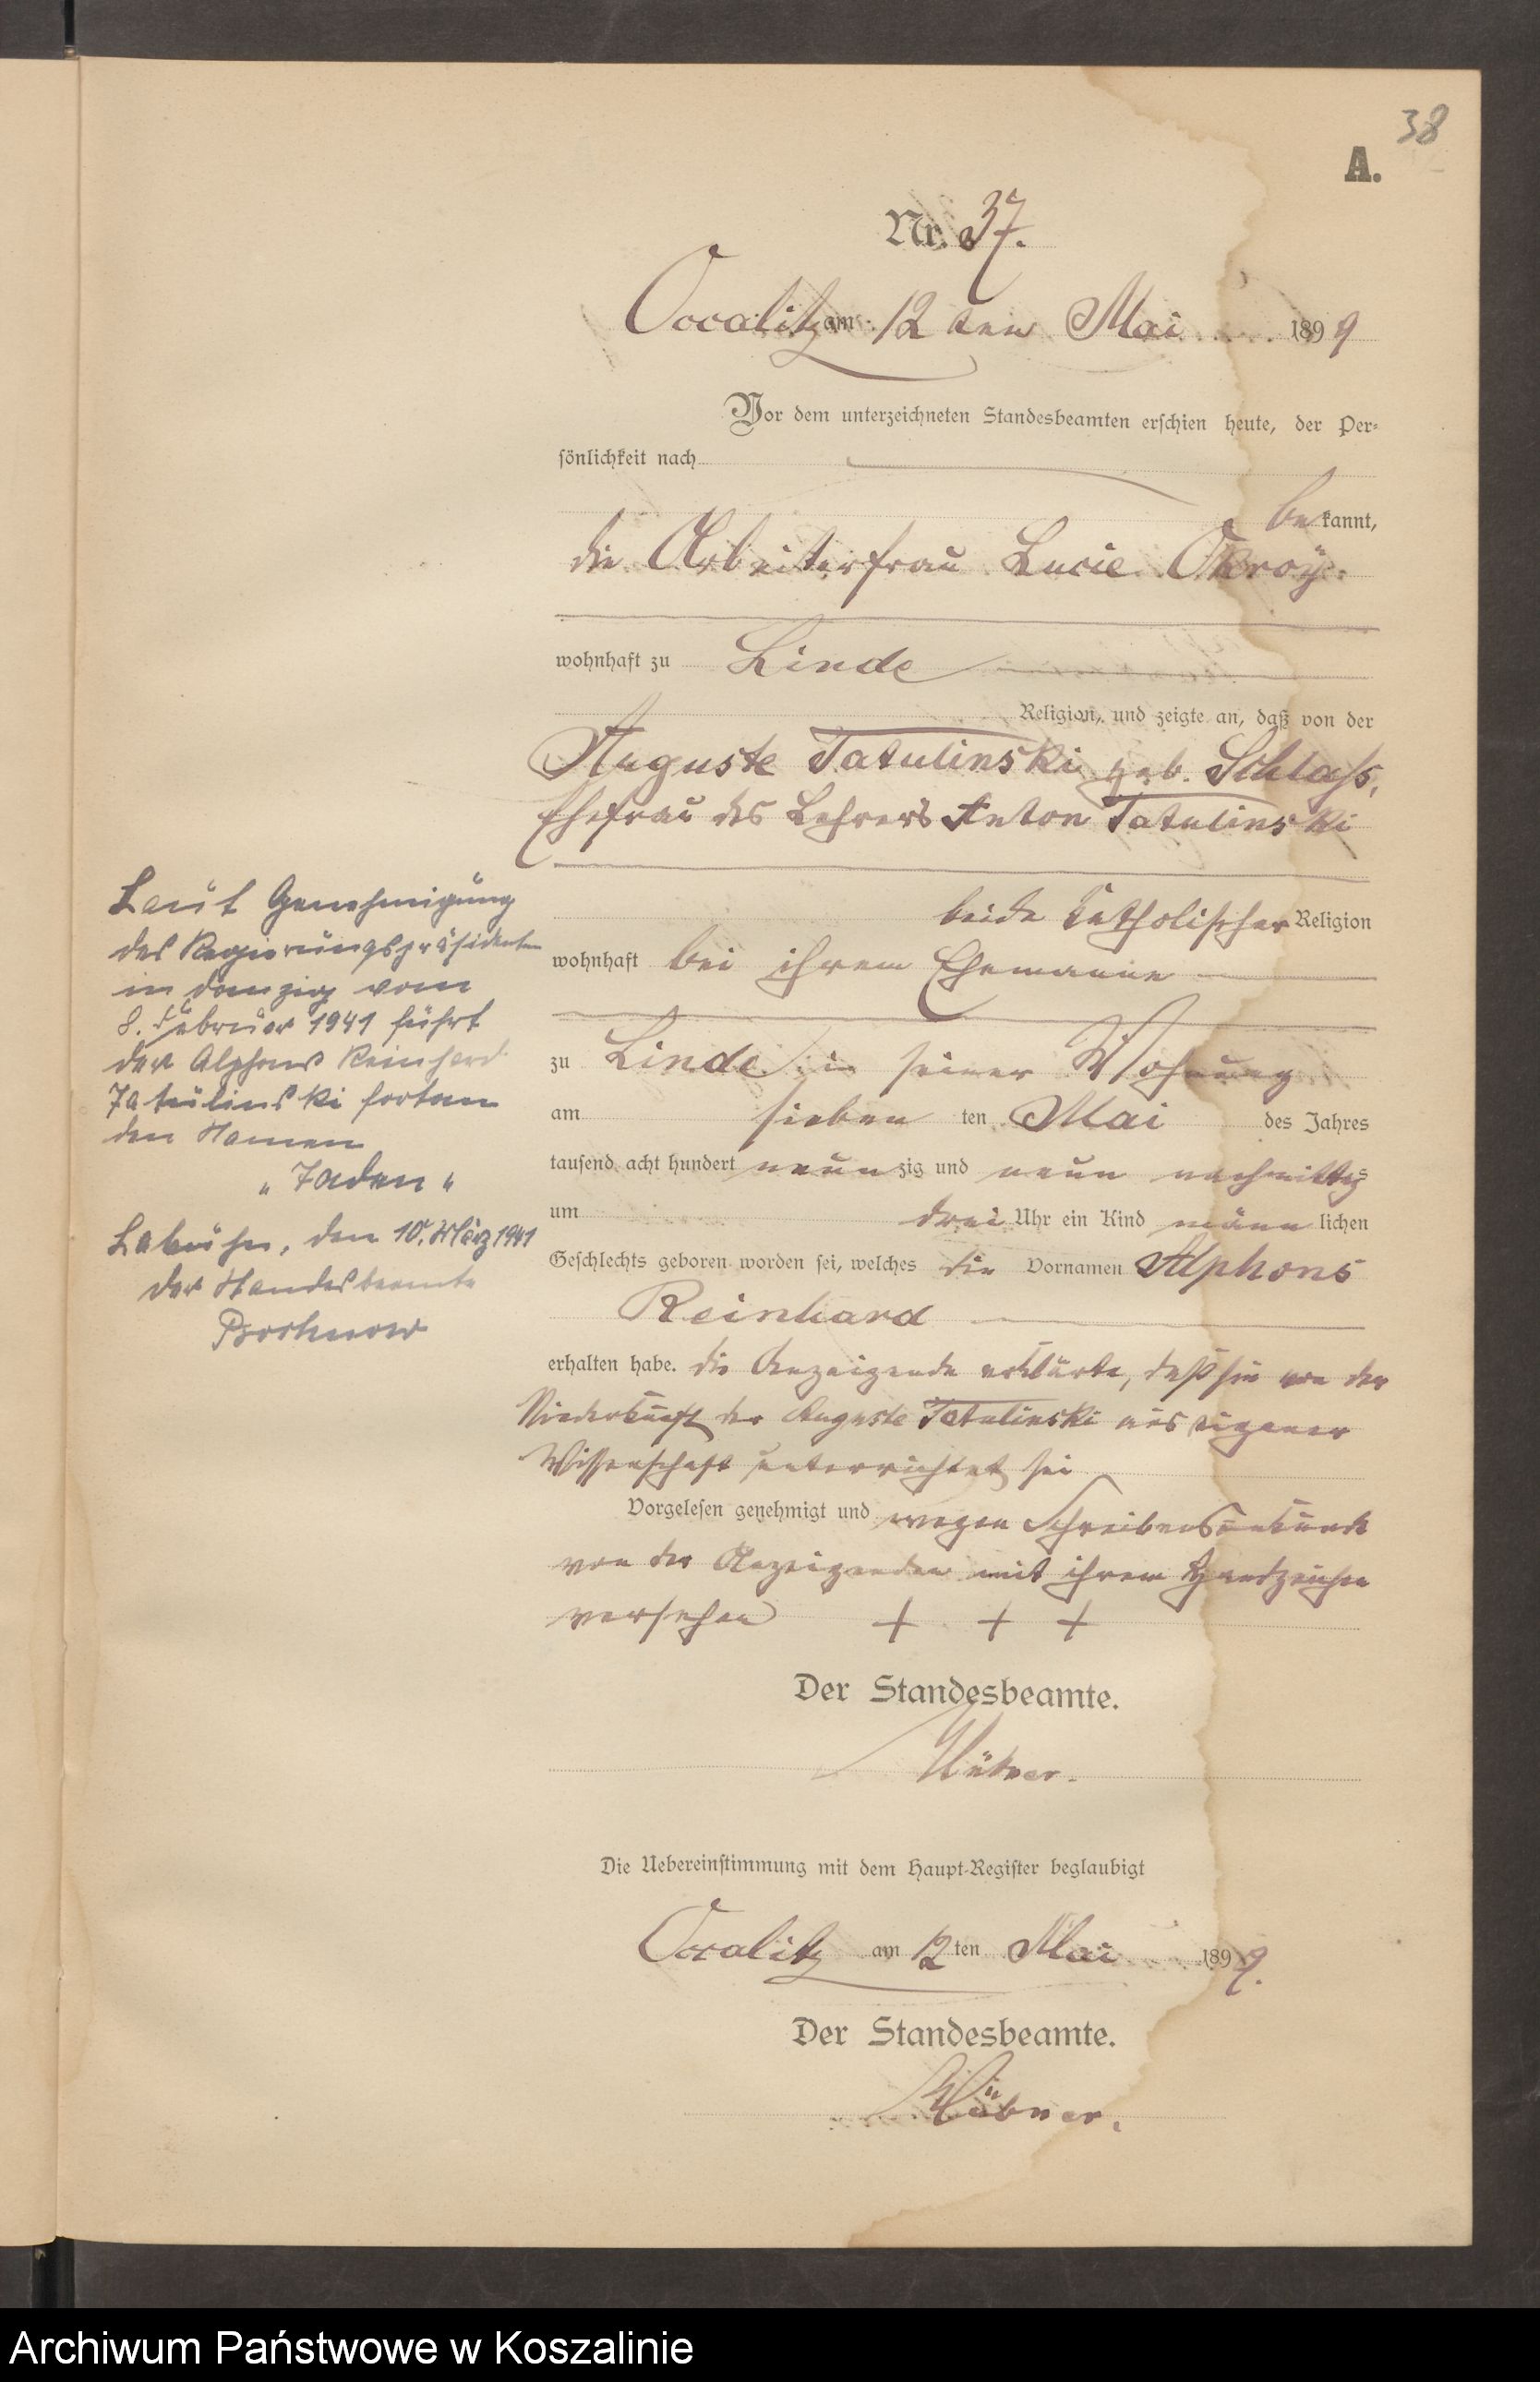 38
A.
Nr. 37.
Occalitz am 12 ten Mai 1899
Vor dem unterzeichneten Standesbeamten erschien heute, der Per-
sönlichkeit nach
bekannt,
die Arbeiterfrau Lucie Okroy
wohnhaft zu Linde
Religion, und zeigte an, daß von der
Auguste Tatulinski geb. Schlass,
Ehefrau des Lehrers Anton Tatulinski
beide katholischer Religion
wohnhaft bei ihrem Ehemanne
zu Linde in seiner Wohnung
am sieben ten Mai des Jahres
tausend acht hundert neunzig und neun nachmittags
um drei Uhr ein Kind männlichen
Geschlechts geboren worden sei, welches die Vornamen Alphons
Reinhard
erhalten habe. Die Anzeigende erklärte, daß sie von der
Niederkunft der Auguste Tatulinski aus eigener
Wissenschaft unterrichtet sei
Vorgelesen genehmigt und wegen Schreibensunkunde
von der Anzeigenden mit ihrem Handzeichen
versehen + + +
Der Standesbeamte.
Hübner.
Die Uebereinstimmung mit dem Haupt-Register beglaubigt
Occalitz am 12 ten Mai 1899.
Der Standesbeamte.
Hübner.
Laut Genehmigung
des Regierungspräsidenten
in Danzig vom
8. Februar 1941 führt
der Alphons Reinhard
Tatulinski fortan
den Namen
„Taden“
Labuhn, den 10. März 1941
Der Standesbeamte
Archiwum Państwowe w Koszalinie